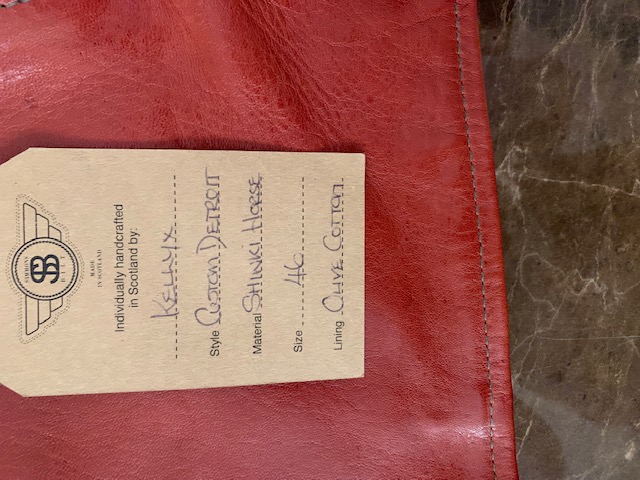 SIMMONS
SB
BILT
MADE
IN SCOTLAND
Individually handcrafted
in Scotland by:
KELLY 1x
Style CUSTOM DETROIT
Material SHINKI HORSE
Size 46
Lining OLIVE COTTON